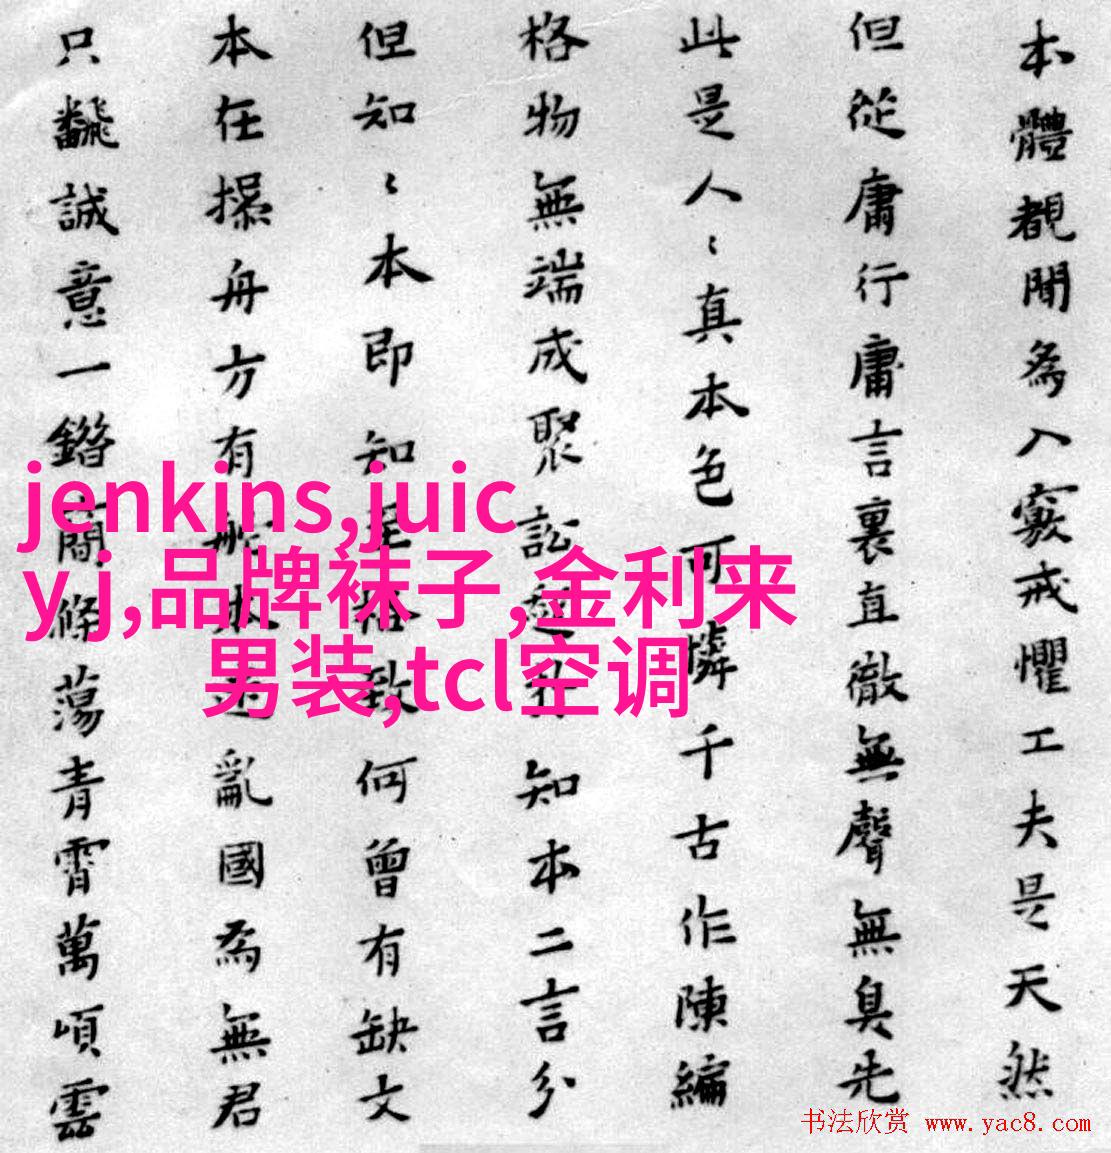 本體覩聞為入竅戒懼工夫是天然
但從庸行庸言裏直徹無聲無臭先
此是人〻真本色可憐千古作陳編
格物無端成聚訟知本二言分
但知〻本即知格致何曾有缺文
本在操舟方有亂國為無君
只飜誠意一鍇條蕩青霄萬頃雲
jenkins,juic
yj,品牌袜子,金利来
男装,tcl空调
书法欣赏 www.yac8.com